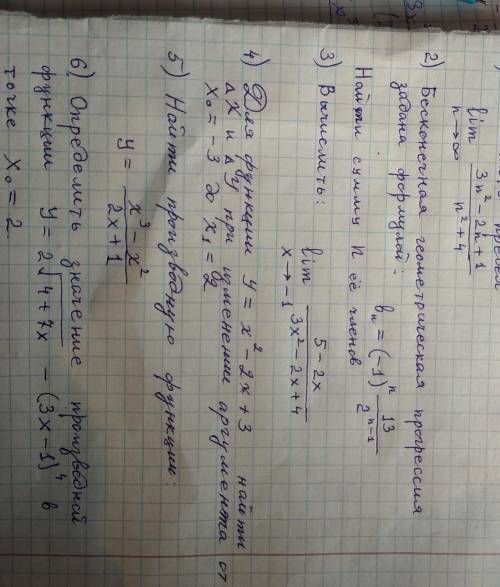 lim n→∞ (3n² - 2n + 1)/(n² + 4)
2) Бесконечная геометрическая прогрессия
задана формулой: bₙ = (-1)ⁿ 13/2ⁿ⁻¹
Найти сумму n её членов
3) Вычислить: lim x→-1 (5 - 2x)/(3x² - 2x + 4)
4) Для функции y = x² - 2x + 3 найти
Δx и Δy при изменении аргумента от
x₀ = -3 до x₁ = 2
5) Найти производную функции:
y = (x³ - x²)/(2x + 1)
6) Определить значение производной
функции y = 2√(4 + 7x) - (3x - 1)⁴ в
точке x₀ = 2.